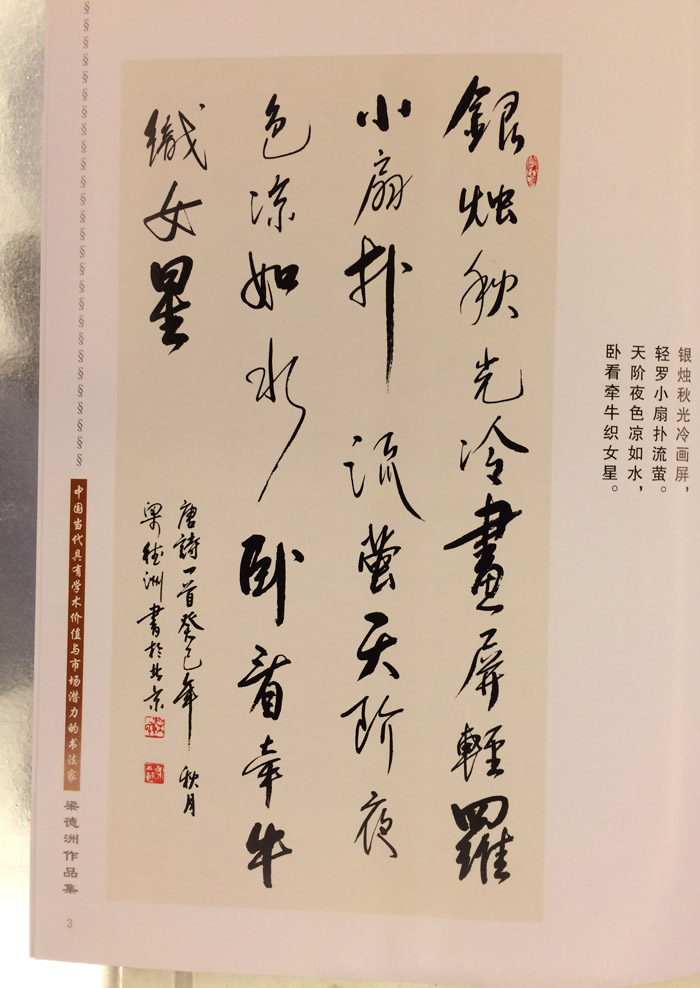 銀烛秋光冷畫屏輕羅
小扇扑流萤天阶夜
色凉如水卧看牵牛
織女星
唐詩一首癸巳年秋月
梁德洲書於北京
银烛秋光冷画屏，
轻罗小扇扑流萤。
天阶夜色凉如水，
卧看牵牛织女星。
中国当代具有学术价值与市场潜力的书法家
梁德洲作品集
3